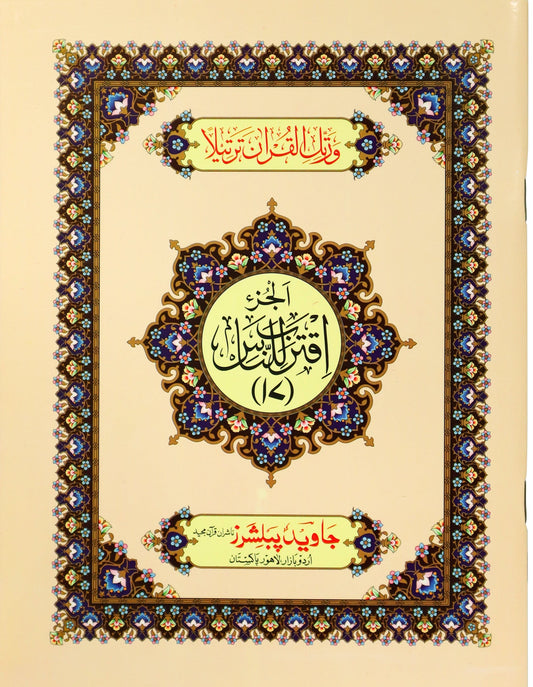 وَرَتِّلِ الْقُرْاٰنَ تَرْتِیْلًا
اَلْجُزْءُ
اِقْتَرَبَ لِلنَّاسِ
(۱۷)
جاوید پبلشرز ناشران قرآن مجید
اردو بازار، لاہور پاکستان